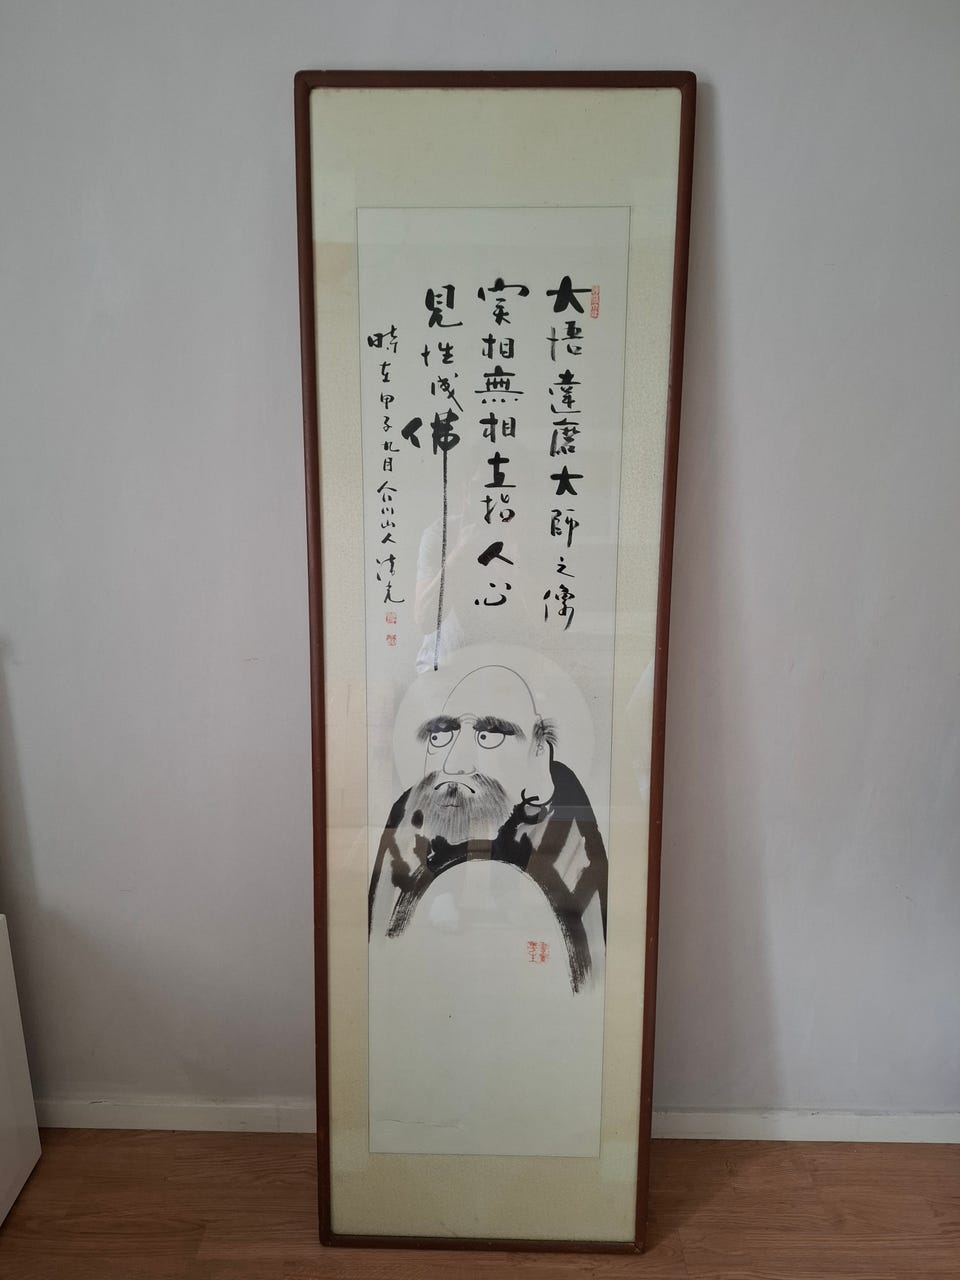 大悟達磨大師之像
实相無相直指人心
見性成佛
時在甲子九月合川山人清光